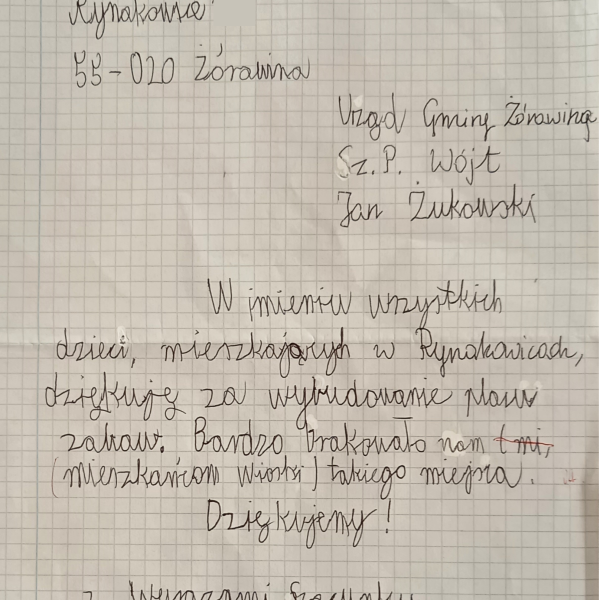 Rynakowice
55-020 Żórawina
Urząd Gminy Żórawina
Sz.P. Wójt
Jan Żukowski
W imieniu wszystkich
dzieci, mieszkających w Rynakowicach,
dziękuję za wybudowanie placu
zabaw. Bardzo brakowało nam
(mieszkańcom wioski) takiego miejsca.
Dziękujemy!
z Wyrazami Szacunku